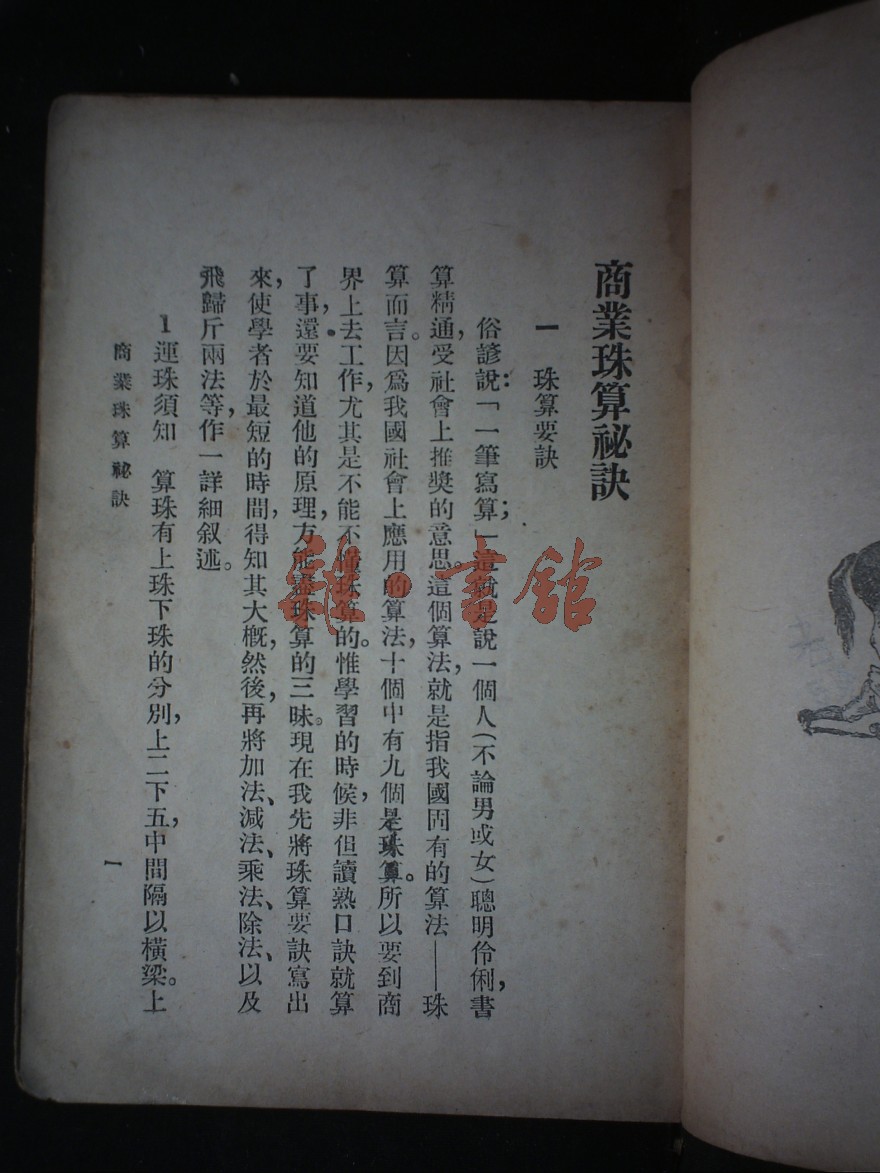 商業珠算祕訣
一　珠算要訣
俗諺說：「一筆寫算；」這就是說一個人（不論男或女）聰明伶俐，書
算精通，受社會上推獎的意思。這個算法，就是指我國固有的算法——珠
算而言。因爲我國社會上應用的算法，十個中有九個是珠算。所以要到商
界上去工作，尤其是不能不懂珠算的。惟學習的時候，非但讀熟口訣就算
了事，還要知道他的原理，方能盡珠算的三昧。現在我先將珠算要訣寫出
來，使學者於最短的時間，得知其大槪，然後再將加法、減法、乘法、除法、以及
飛歸斤兩法等，作一詳細叙述。
1 運珠須知　算珠有上珠下珠的分別，上二下五，中間隔以橫梁。上
商業珠算祕訣
一
雜·書館